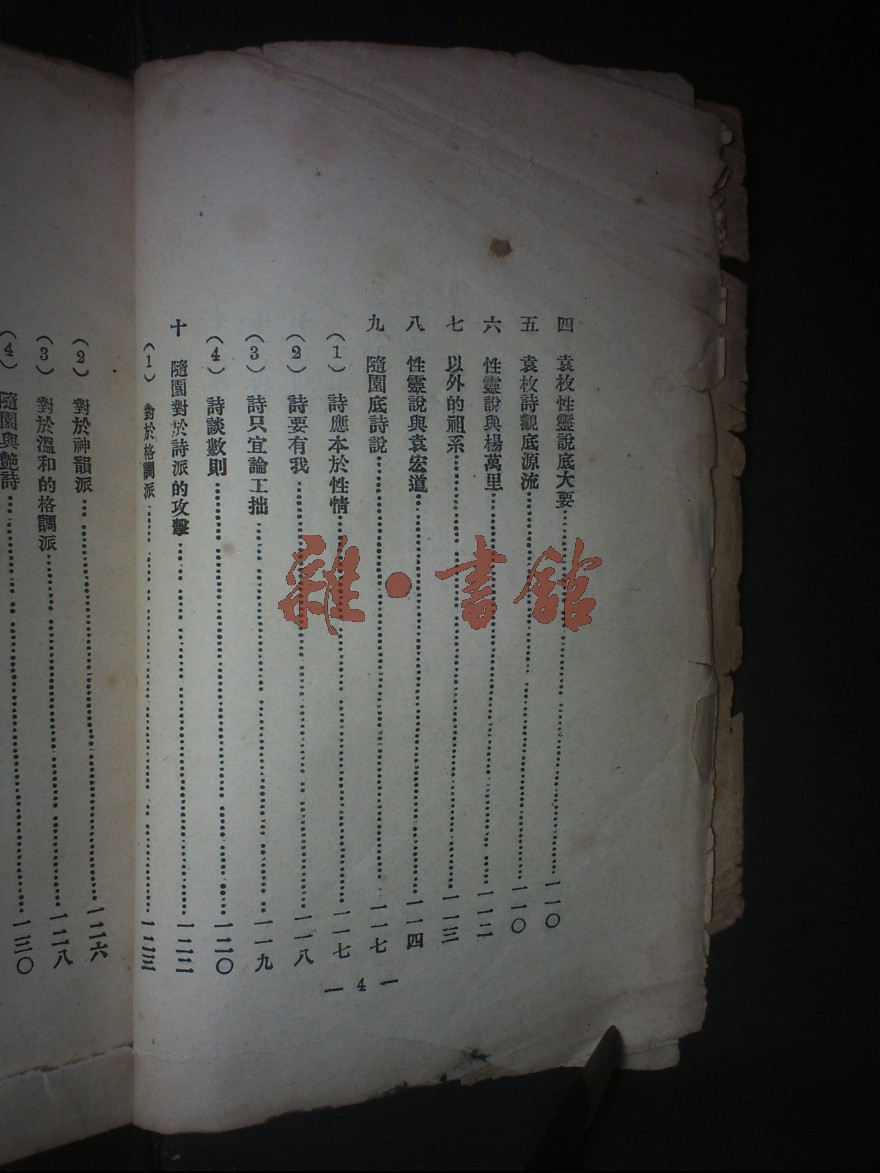 四　袁枚性靈說底大要……一一〇
五　袁枚詩觀底源流……一一〇
六　性靈說與楊萬里……一一二
七　以外的祖系……一一三
八　性靈說與袁宏道……一一四
九　隨園底詩說……一一七
（1）詩應本於性情……一一七
（2）詩要有我……一一八
（3）詩只宜論工拙……一一九
（4）詩談數則……一二〇
十　隨園對於詩派的攻擊……一二二
（1）對於格調派……一二三
（2）對於神韻派……一二六
（3）對於溫和的格調派……一二八
（4）隨園與艷詩……一三〇
— 4 —
雜·書館